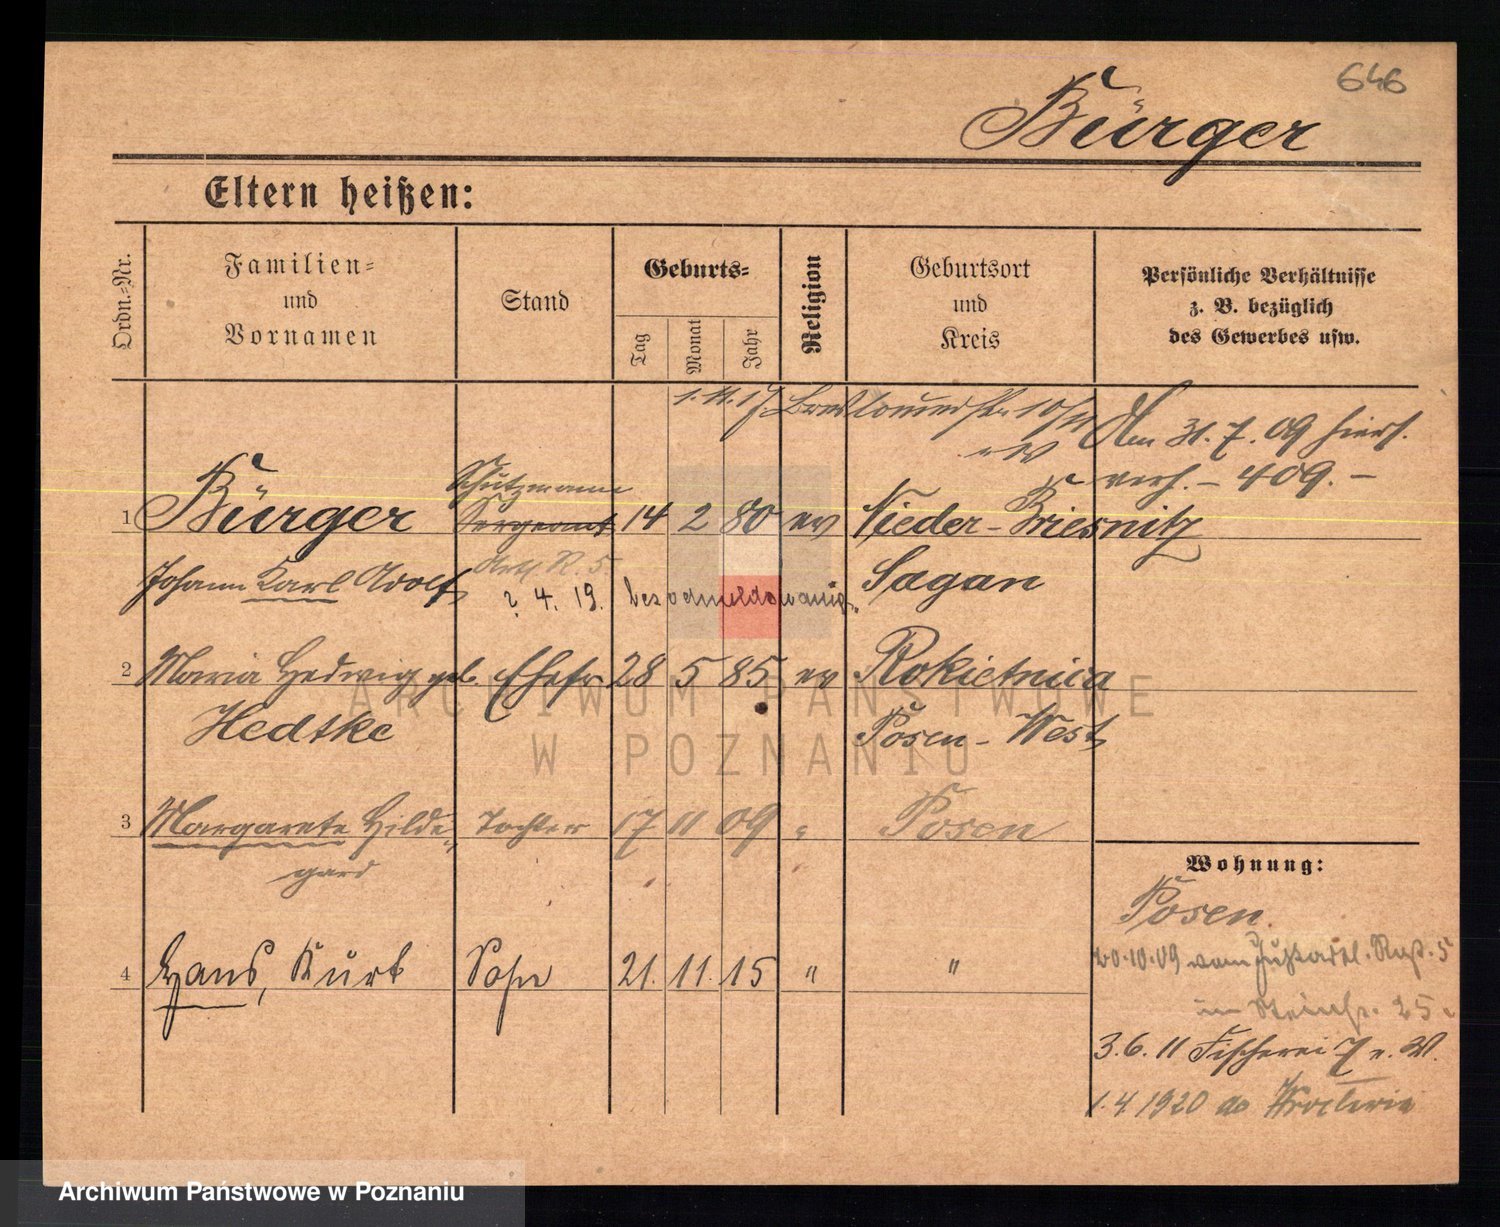 646
Bürger
Eltern heißen:
Ordn.-Nr.
Familien-
und
Vornamen
Stand
Geburts-
Tag
Monat
Jahr
Religion
Geburtsort
und
Kreis
Persönliche Verhältnisse
z. B. bezüglich
des Gewerbes usw.
1. 11. 17. 10/11
Am 31. 7. 09 hiers.
verh. – 409. –
Schutzmann
1 Bürger Sergeant 14 2 80 ev Nieder-Briesnitz
Johann Karl Adolf Art. R. 5 Sagan
2. 4. 19. bez odmeldowania
2 Maria Hedwig geb. Ehefr 28 5 85 ev Rokietnica
Hedtke Posen-West
ARCHIWUM PAŃSTWOWE
W POZNANIU
3 Margarete Hilde- Tochter 17 11 09 " Posen
gard
Wohnung:
Posen
4 Hans, Kurt Sohn 21. 11. 15 " "
20.10.09 vom Fußartl. Rgt. 5
25
3. 6. 11 Fischerei 7 n. W.
1.4 1920 do
Archiwum Państwowe w Poznaniu